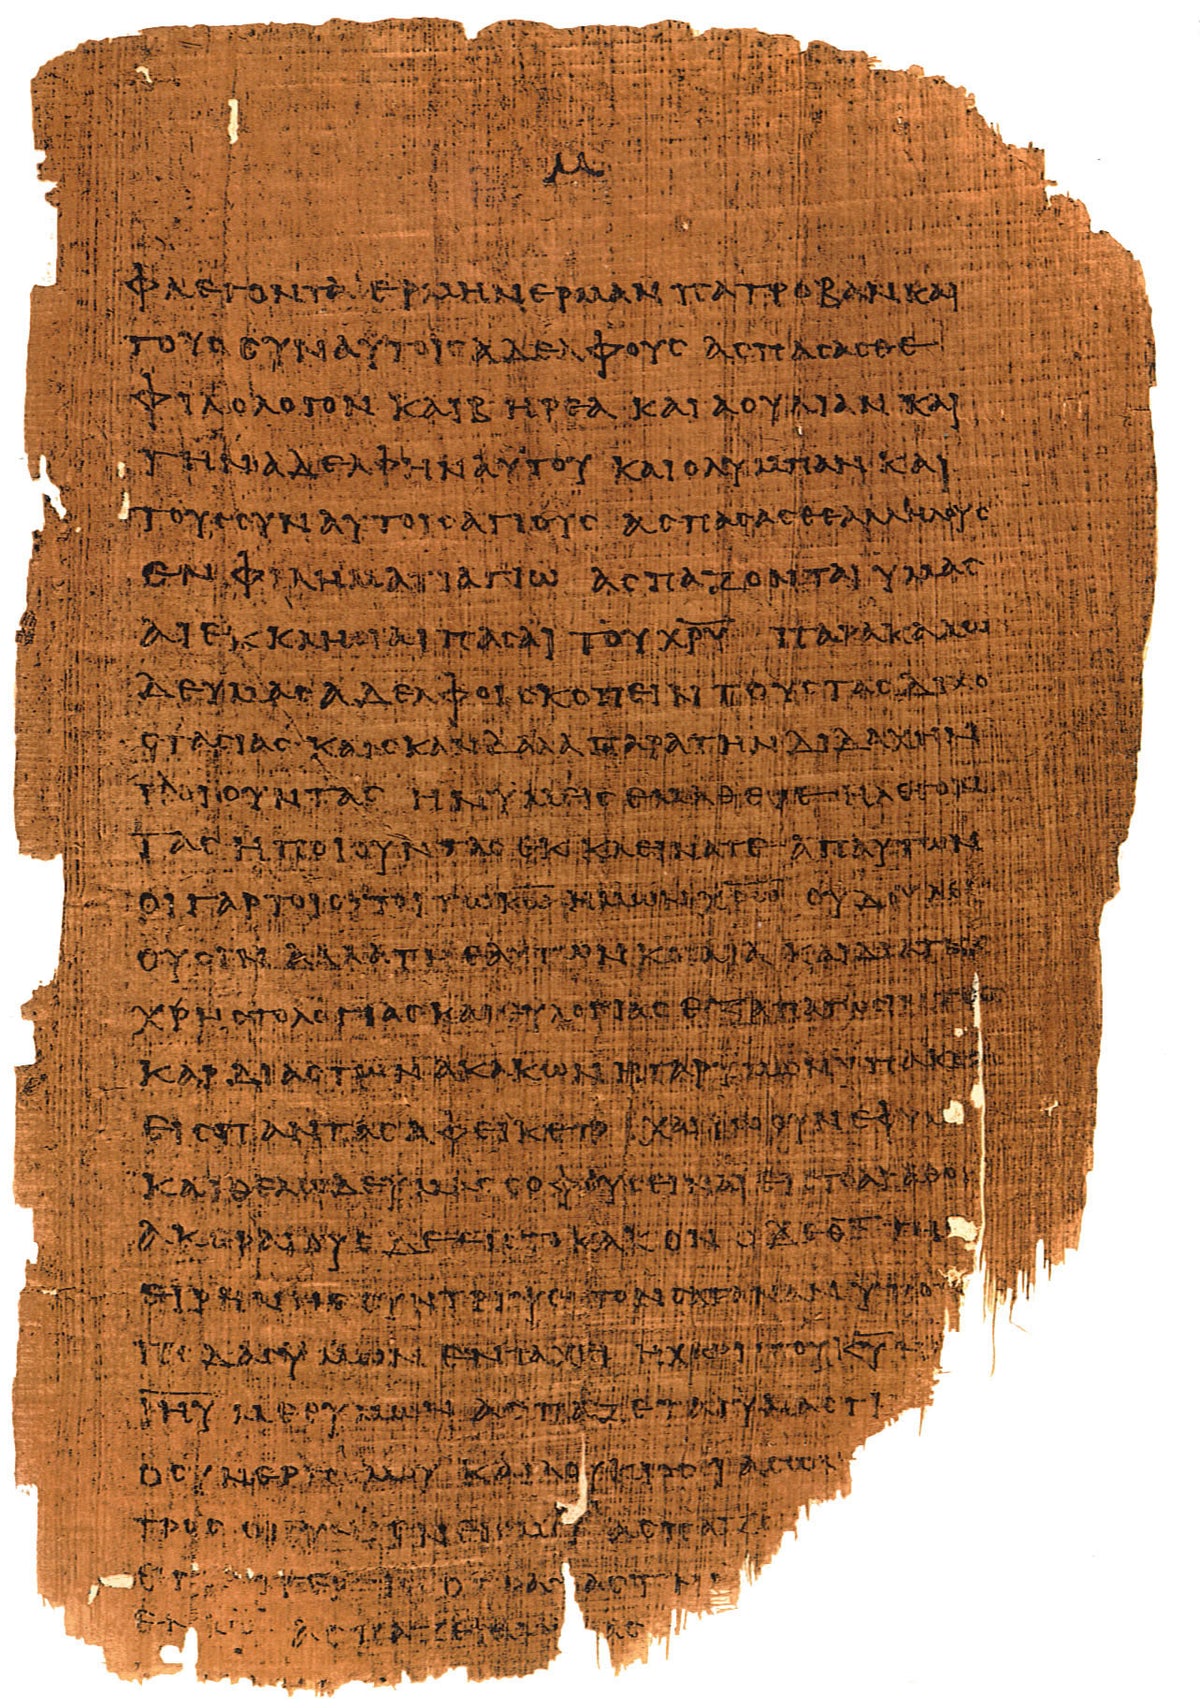 μ
ΦΛΕΓΟΝΤΑ ΕΡΜΗΝ ΕΡΜΑΝ ΠΑΤΡΟΒΑΝ ΚΑΙ
ΤΟΥϹ ϹΥΝ ΑΥΤΟΙϹ ΑΔΕΛΦΟΥϹ ΑϹΠΑϹΑϹΘΕ
ΦΙΛΟΛΟΓΟΝ ΚΑΙ ΒΗΡΕΑ ΚΑΙ ΑΟΥΛΙΑΝ ΚΑΙ
ΤΗΝ ΑΔΕΛΦΗΝ ΑΥΤΟΥ ΚΑΙ ΟΛΥΜΠΑΝ ΚΑΙ
ΤΟΥϹ ϹΥΝ ΑΥΤΟΙϹ ΑΓΙΟΥϹ ΑϹΠΑϹΑϹΘΕ ΑΛΛΗΛΟΥϹ
ΕΝ ΦΙΛΗΜΑΤΙ ΑΓΙΩ ΑϹΠΑΖΟΝΤΑΙ ΥΜΑϹ
ΑΙ ΕΚΚΛΗϹΙΑΙ ΠΑϹΑΙ ΤΟΥ Χ̅Ρ̅Υ̅ ΠΑΡΑΚΑΛΩ
ΔΕ ΥΜΑϹ ΑΔΕΛΦΟΙ ϹΚΟΠΕΙΝ ΤΟΥϹ ΤΑϹ ΔΙΧΟ
ϹΤΑϹΙΑϹ ΚΑΙ ϹΚΑΝΔΑΛΑ ΠΑΡΑ ΤΗΝ ΔΙΔΑΧΗΝ
ΠΟΙΟΥΝΤΑϹ ΗΝ ΥΜΕΙϹ ΕΜΑΘΕΤΕ Η ΛΕΓΟΝ
ΤΑϹ Η ΠΟΙΟΥΝΤΑϹ ΕΚΚΛΕΙΝΑΤΕ ΑΠ ΑΥΤΩΝ
ΟΙ ΓΑΡ ΤΟΙΟΥΤΟΙ ΤΩ Κ̅Ω̅ ΗΜΩΝ Χ̅Ρ̅Ω̅ ΟΥ ΔΟΥΛΕΥ
ΟΥϹΙΝ ΑΛΛΑ ΤΗ ΕΑΥΤΩΝ ΚΟΙΛΙΑ ΚΑΙ ΔΙΑ ΤΗϹ
ΧΡΗϹΤΟΛΟΓΙΑϹ ΚΑΙ ΕΥΛΟΓΙΑϹ ΕΞΑΠΑΤΩϹΙΝ ΤΑϹ
ΚΑΡΔΙΑϹ ΤΩΝ ΑΚΑΚΩΝ Η ΓΑΡ ΥΜΩΝ ΥΠΑΚΟΗ
ΕΙϹ ΠΑΝΤΑϹ ΑΦΕΙΚΕΤΟ ΧΑΙΡΩ ΟΥΝ ΕΦ ΥΜ
ΚΑΙ ΘΕΛΩ ΔΕ ΥΜΑϹ ϹΟΦΟΥϹ ΕΙΝΑΙ ΕΙϹ ΤΟ ΑΓΑΘΟ
ΑΚΕΡΑΙΟΥϹ ΔΕ ΕΙϹ ΤΟ ΚΑΚΟΝ Ο ΔΕ Θ̅Ϲ̅ ΤΗ
ΕΙΡΗΝΗϹ ϹΥΝΤΡΙΨΕΙ ΤΟΝ ϹΑΤΑΝΑΝ ΥΠΟ
ΠΟΔΑϹ ΥΜΩΝ ΕΝ ΤΑΧΕΙ Η ΧΑΡΙϹ ΤΟΥ Κ̅Υ̅
Ι̅Η̅Υ̅ ΜΕΘ ΥΜΩΝ ΑϹΠΑΖΕΤΑΙ ΥΜΑϹ ΤΙ
Ο ϹΥΝΕΡΓΟϹ ΜΟΥ ΚΑΙ ΛΟΥΚΙΟϹ
ΤΡΟϹ ΟΙ ϹΥΝΓΕΝΕΙϹ ΜΟΥ ΑϹΠΑΖ
ΑϹΠΑΖΕΤΑΙ